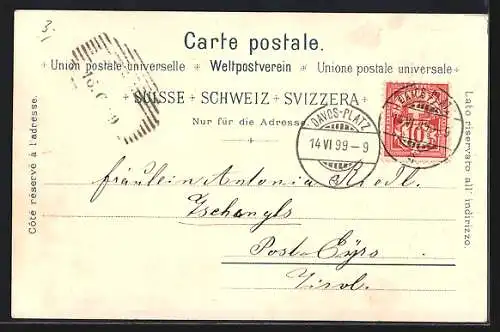 3.
Carte postale.
Union postale universelle + Weltpostverein + Unione postale universale
SUISSE + SCHWEIZ + SVIZZERA
Nur für die Adresse.
Côté réservé à l'adresse.
Lato riservato all' indirizzo.
DAVOS-PLATZ
14 VI 99-9
10
Fräulein Antonia
Tschengls
Post Eyrs
Tirol.